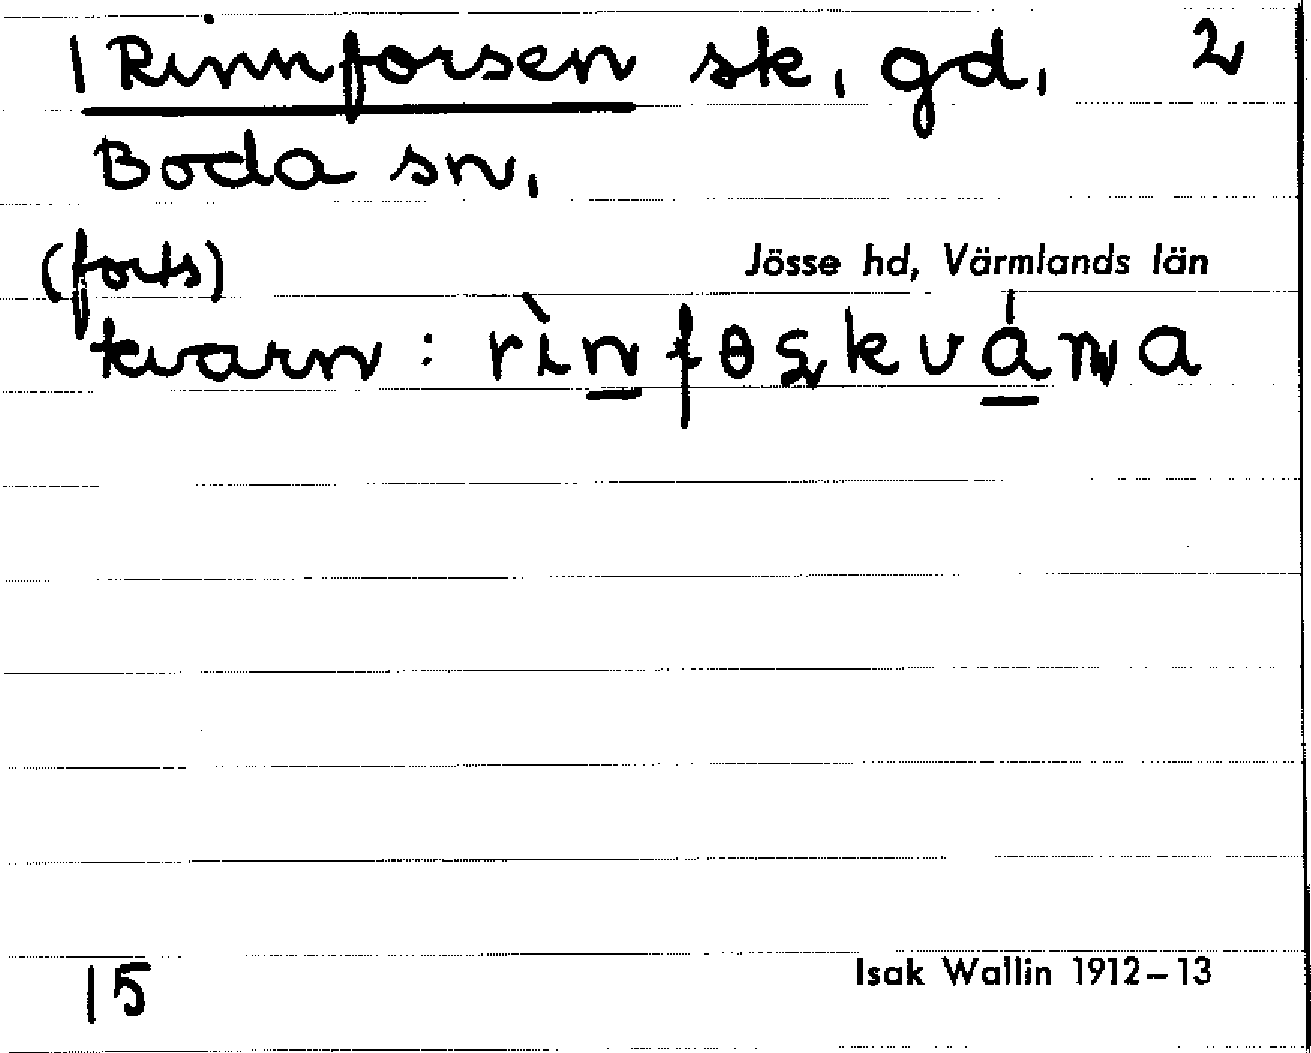 1 Rinnforsen sk. gd. 2
Boda sn.
(forts)
Jösse hd, Värmlands län
kvarn: rı̀n̲fɵʂkvá̲ɳa
15
Isak Wallin 1912–13